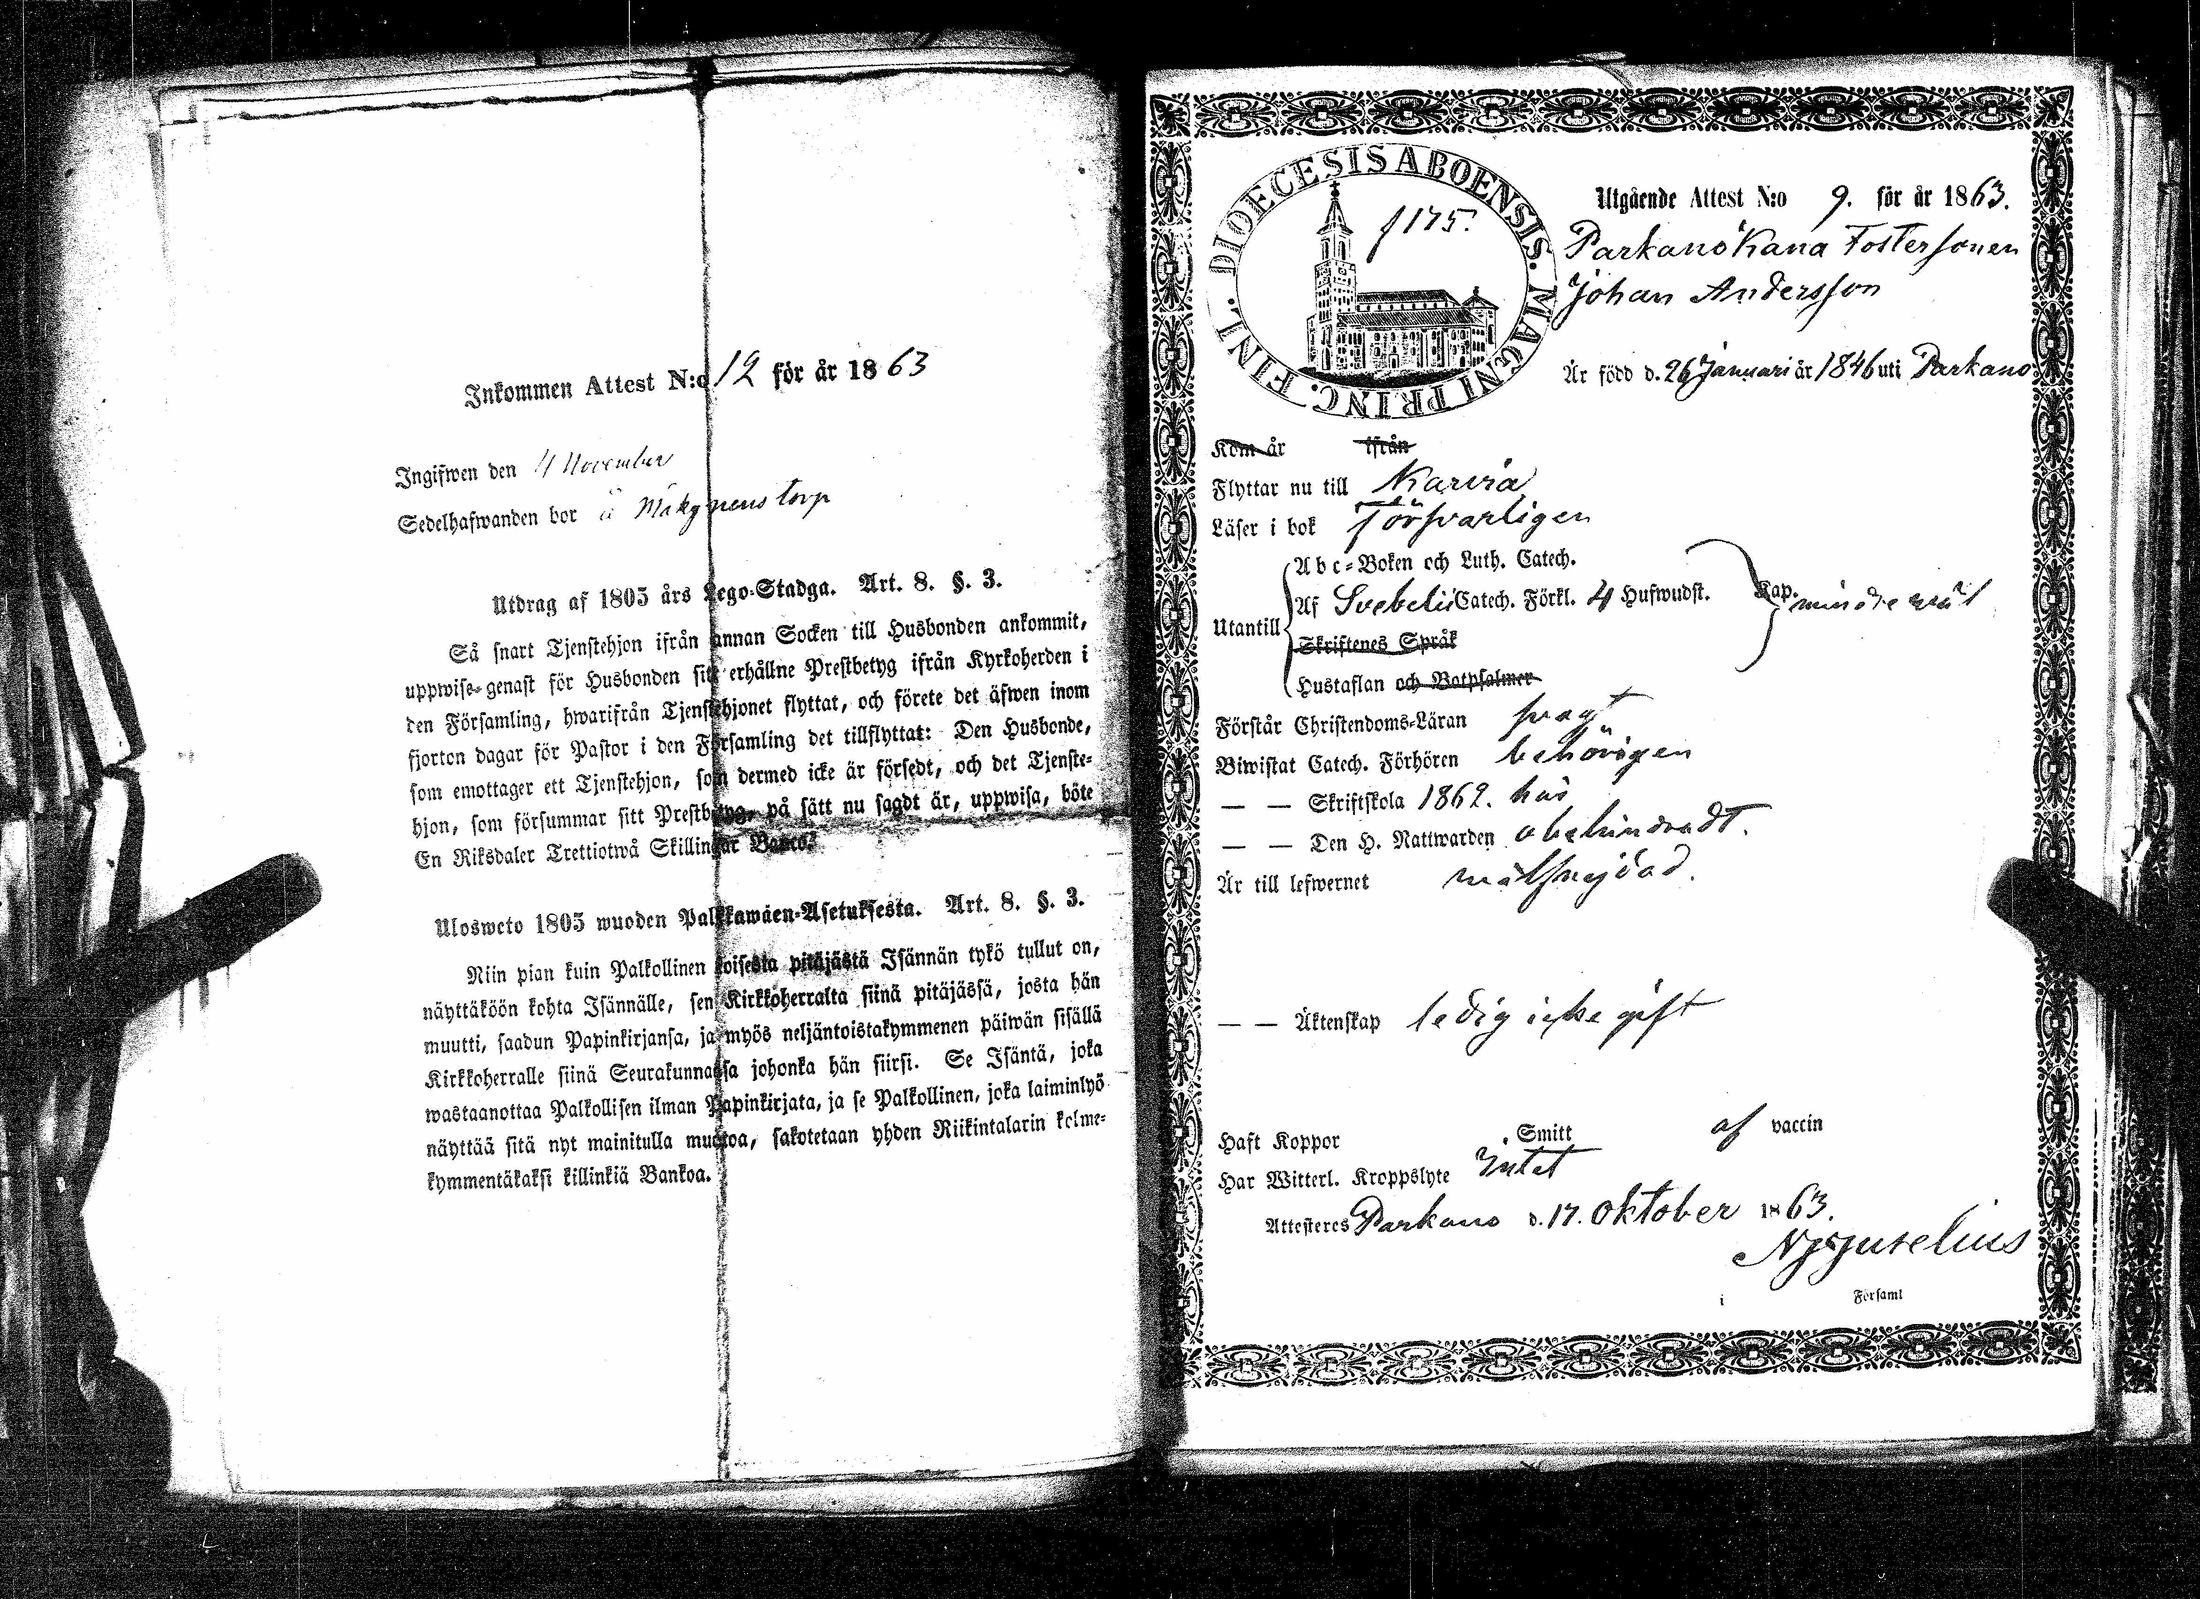 Inkommen Attest N:o 12 för år 1863
Ingifwen den 4 November
Sedelhafwanden bor å torp
Utdrag af 1805 års Lego-Stadga. Art. 8. §. 3.
Så snart Tjenstehjon ifrån annan Socken till Husbonden ankommit,
uppwise genast för Husbonden sitt erhållne Prestbetyg ifrån Kyrkoherden i
den Församling, hwarifrån Tjenstehjonet flyttat, och förete det äfwen inom
fjorton dagar för Pastor i den Församling det tillflyttat: Den Husbonde,
som emottager ett Tjenstehjon, som dermed icke är försedt, och det Tjenste-
hjon, som försummar sitt Prestbetyg, på sätt nu sagdt är, uppwisa, böte
En Riksdaler Trettiotwå Skillingar Banco.
Ulosweto 1805 wuoden Palkkawäen-Asetuksesta. Art. 8. §. 3.
Niin pian kuin Palkollinen toisesta pitäjästä Isännän tykö tullut on,
näyttäköön kohta Isännälle, sen Kirkkoherralta siinä pitäjässä, josta hän
muutti, saadun Papinkirjansa, ja myös neljäntoistakymmenen päiwän sisällä
Kirkkoherralle siinä Seurakunnassa johonka hän siirsi. Se Isäntä, joka
wastaanottaa Palkollisen ilman Papinkirjata, ja se Palkollinen, joka laiminlyö
näyttää sitä nyt mainitulla muotoa, sakotetaan yhden Riikintalarin kolme-
kymmentäkaksi killinkiä Bankoa.
DIOECESIS ABOENSIS. MAGNI PRINC. FINL.
f 175.
Utgående Attest N:o 9. för år 1863.
Parkano Kana Fostersonen
Johan Andersson
Är född d. 26 Januari år 1846 uti Parkano
Kom år ifrån
Flyttar nu till Karvia
Läser i bok försvarligen
Abc-Boken och Luth. Catech.
Utantill Af Svebelii Catech. Förkl. 4 Hufwudst. Kap. mindre wäl
Skriftenes Språk
Hustaflan och Botpsalmer
Förstår Christendoms-Läran svagt
Biwistat Catech. Förhören behörigen
— — Skriftskola 1862. här
— — Den H. Nattwarden obehindradt.
Är till lefwernet wälfrejdad.
— — Äktenskap ledig icke gift
Haft Koppor Smitt af vaccin
Har Witterl. Kroppslyte Intet
Attesteres Parkano d. 17. Oktober 1863.
i Församl